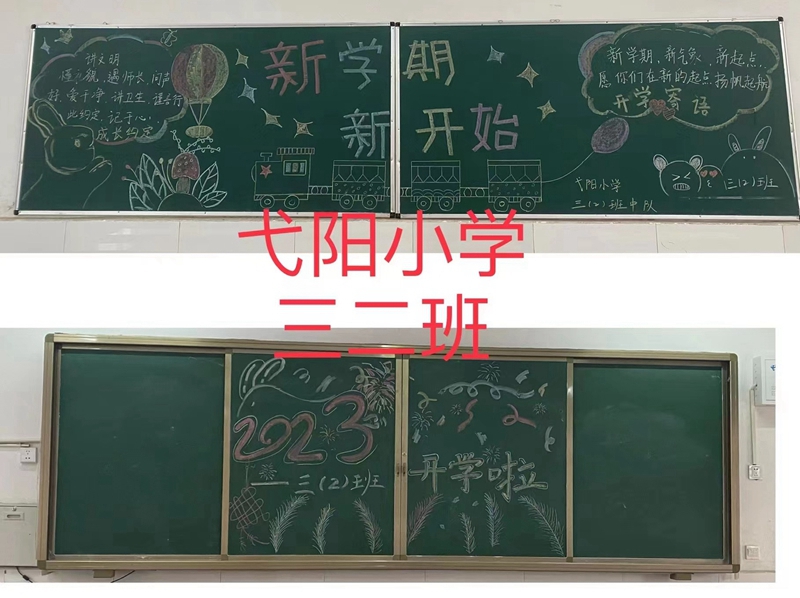 讲文明
懂礼貌,遇师长,问声
好,爱干净,讲卫生,
此约定,记于心...
成长约定
新学期
新开始
新学期,新气象,新起点
愿你们在新的起点扬帆起航
开学寄语
三(2)班
弋阳小学
三(2)班中队
弋阳小学
三二班
2023
三(2)班
开学啦